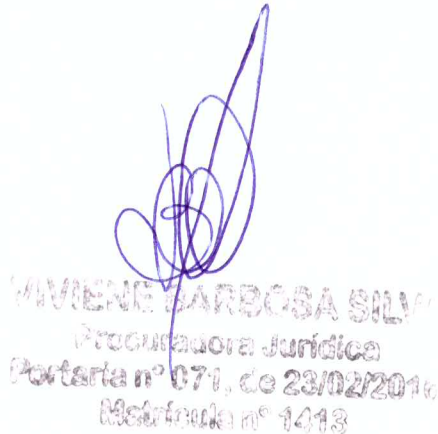 VIVIENE BARBOSA SILV
Procuradora Jurídica
Portaria nº 071, de 23/02/201
Matrícula nº 1413